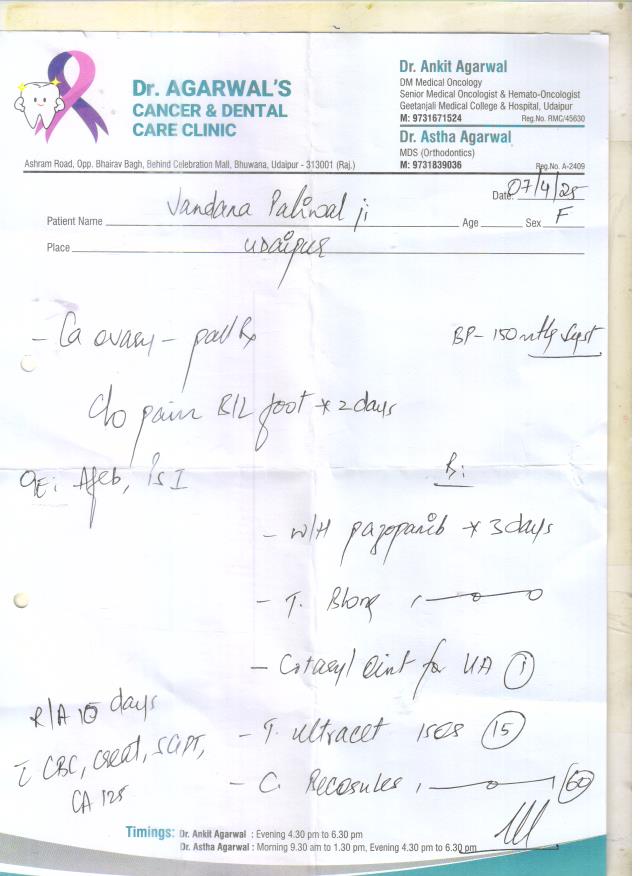 Dr. AGARWAL'S
CANCER & DENTAL
CARE CLINIC
Ashram Road, Opp. Bhairav Bagh, Behind Celebration Mall, Bhuwana, Udaipur - 313001 (Raj.)
Dr. Ankit Agarwal
DM Medical Oncology
Senior Medical Oncologist & Hemato-Oncologist
Geetanjali Medical College & Hospital, Udaipur
M: 9731671524 Reg.No. RMC/45630
Dr. Astha Agarwal
MDS (Orthodontics)
M: 9731839036 Reg.No. A-2409
Date: 07/4/25
Patient Name Vandana Paliwal ji Age Sex F
Place Udaipur
- Ca ovary - pall Rx
BP- 150 mmHg Syst
c/o pain B/L foot * 2 days
O/E: Afeb, PS I
R:
- W/H pazopanib * 3 days
- T.
- Cotaryl Oint for L/A (1)
- T. ultracet 1SOS (15)
- C. Becosules (60)
R/A 10 days
c CBC, creat, SGPT,
CA 125
Timings: Dr. Ankit Agarwal : Evening 4.30 pm to 6.30 pm
Dr. Astha Agarwal : Morning 9.30 am to 1.30 pm, Evening 4.30 pm to 6.30 pm